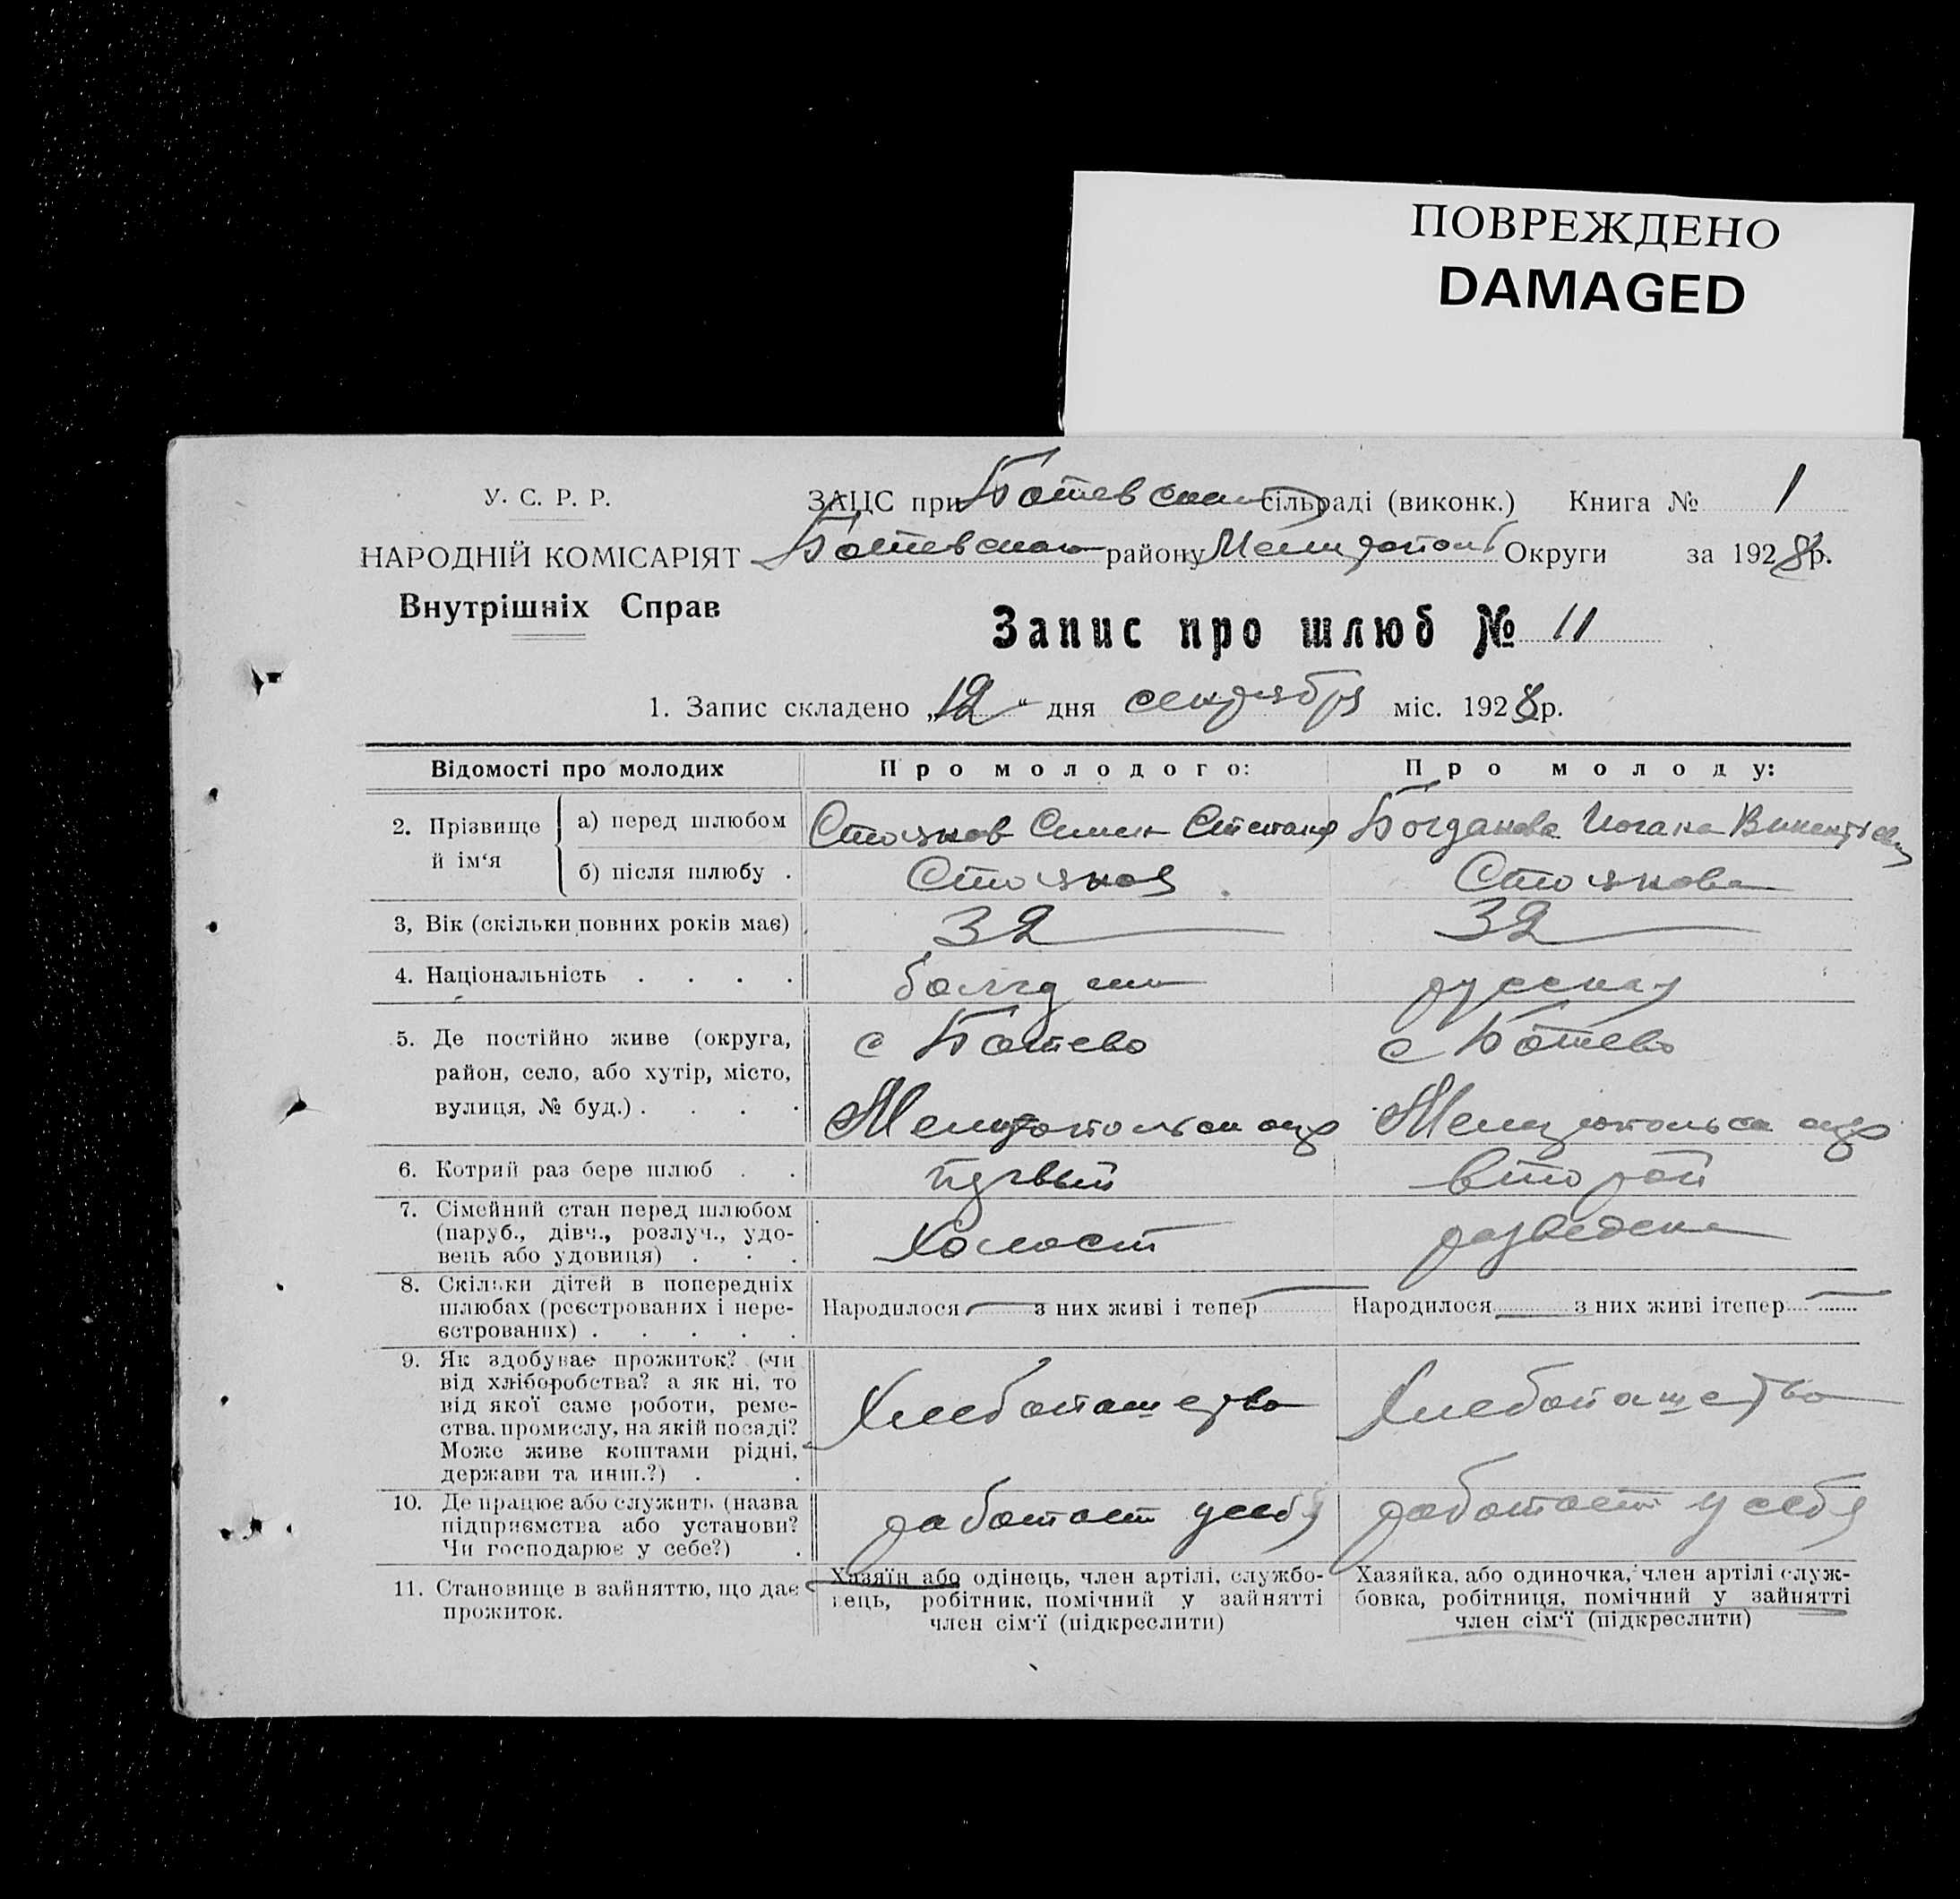 ПОВРЕЖДЕНО
DAMAGED
У. С. Р. Р.
НАРОДНІЙ КОМІСАРІЯТ
Внутрішніх Справ
ЗАЦС при Ботевском сільраді (виконк.) Книга № 1
Ботевского району Мелитополь Округи за 1928 р.
Запис про шлюб № 11
1. Запис складено „12“ дня сентября міс. 1928 р.
Відомості про молодих Про молодого: Про молоду:
2. Прізвище й ім‘я
а) перед шлюбом Стоянов Семен Степан Богданова Викентьев
б) після шлюбу . Стоянов Стоянова
3, Вік (скільки повних років має) 32 32
4. Національність . . . . болгарин русская
5. Де постійно живе (округа, район, село, або хутір, місто, вулиця, № буд.) . . . .
с Ботево с Ботево
Мелитопольск окр Мелитопольск окр
6. Котрий раз бере шлюб . . первый второй
7. Сімейний стан перед шлюбом
(паруб., дівч., розлуч., удо-
вець або удовиця) . . .
Холост разведена
8. Скільки дітей в попередніх
шлюбах (реєстрованих і нере-
єстрованих) . . . . .
Народилося — з них живі і тепер — Народилося — з них живі і тепер —
9. Як здобуває прожиток? (чи
від хліборобства? а як ні, то
від якої саме роботи, реме-
ства, промислу, на якій посаді?
Може живе коштами рідні,
держави та инш.?) . .
Хлебопашество Хлебопашество
10. Де працює або служить (назва
підприємства або установи?
Чи господарює у себе?) .
работает у себя работает у себя
11. Становище в зайняттю, що дає
прожиток.
Хазяїн або одінець, член артілі, службо-
вець, робітник, помічний у зайнятті
член сім‘ї (підкреслити)
Хазяйка, або одиночка, член артілі служ-
бовка, робітниця, помічний у зайнятті
член сім‘ї (підкреслити)